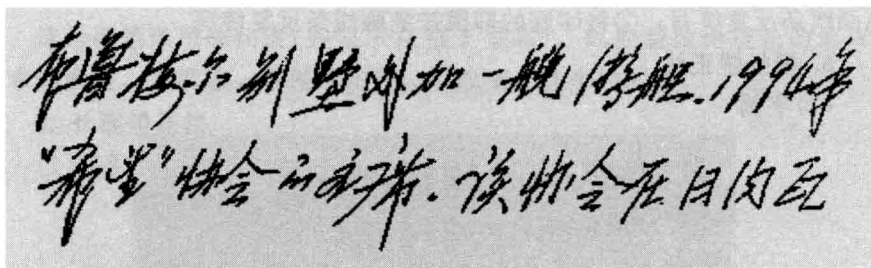 布鲁塞尔别墅外加一艘游艇.1994年
"希望"协会的主席.该协会在日内瓦